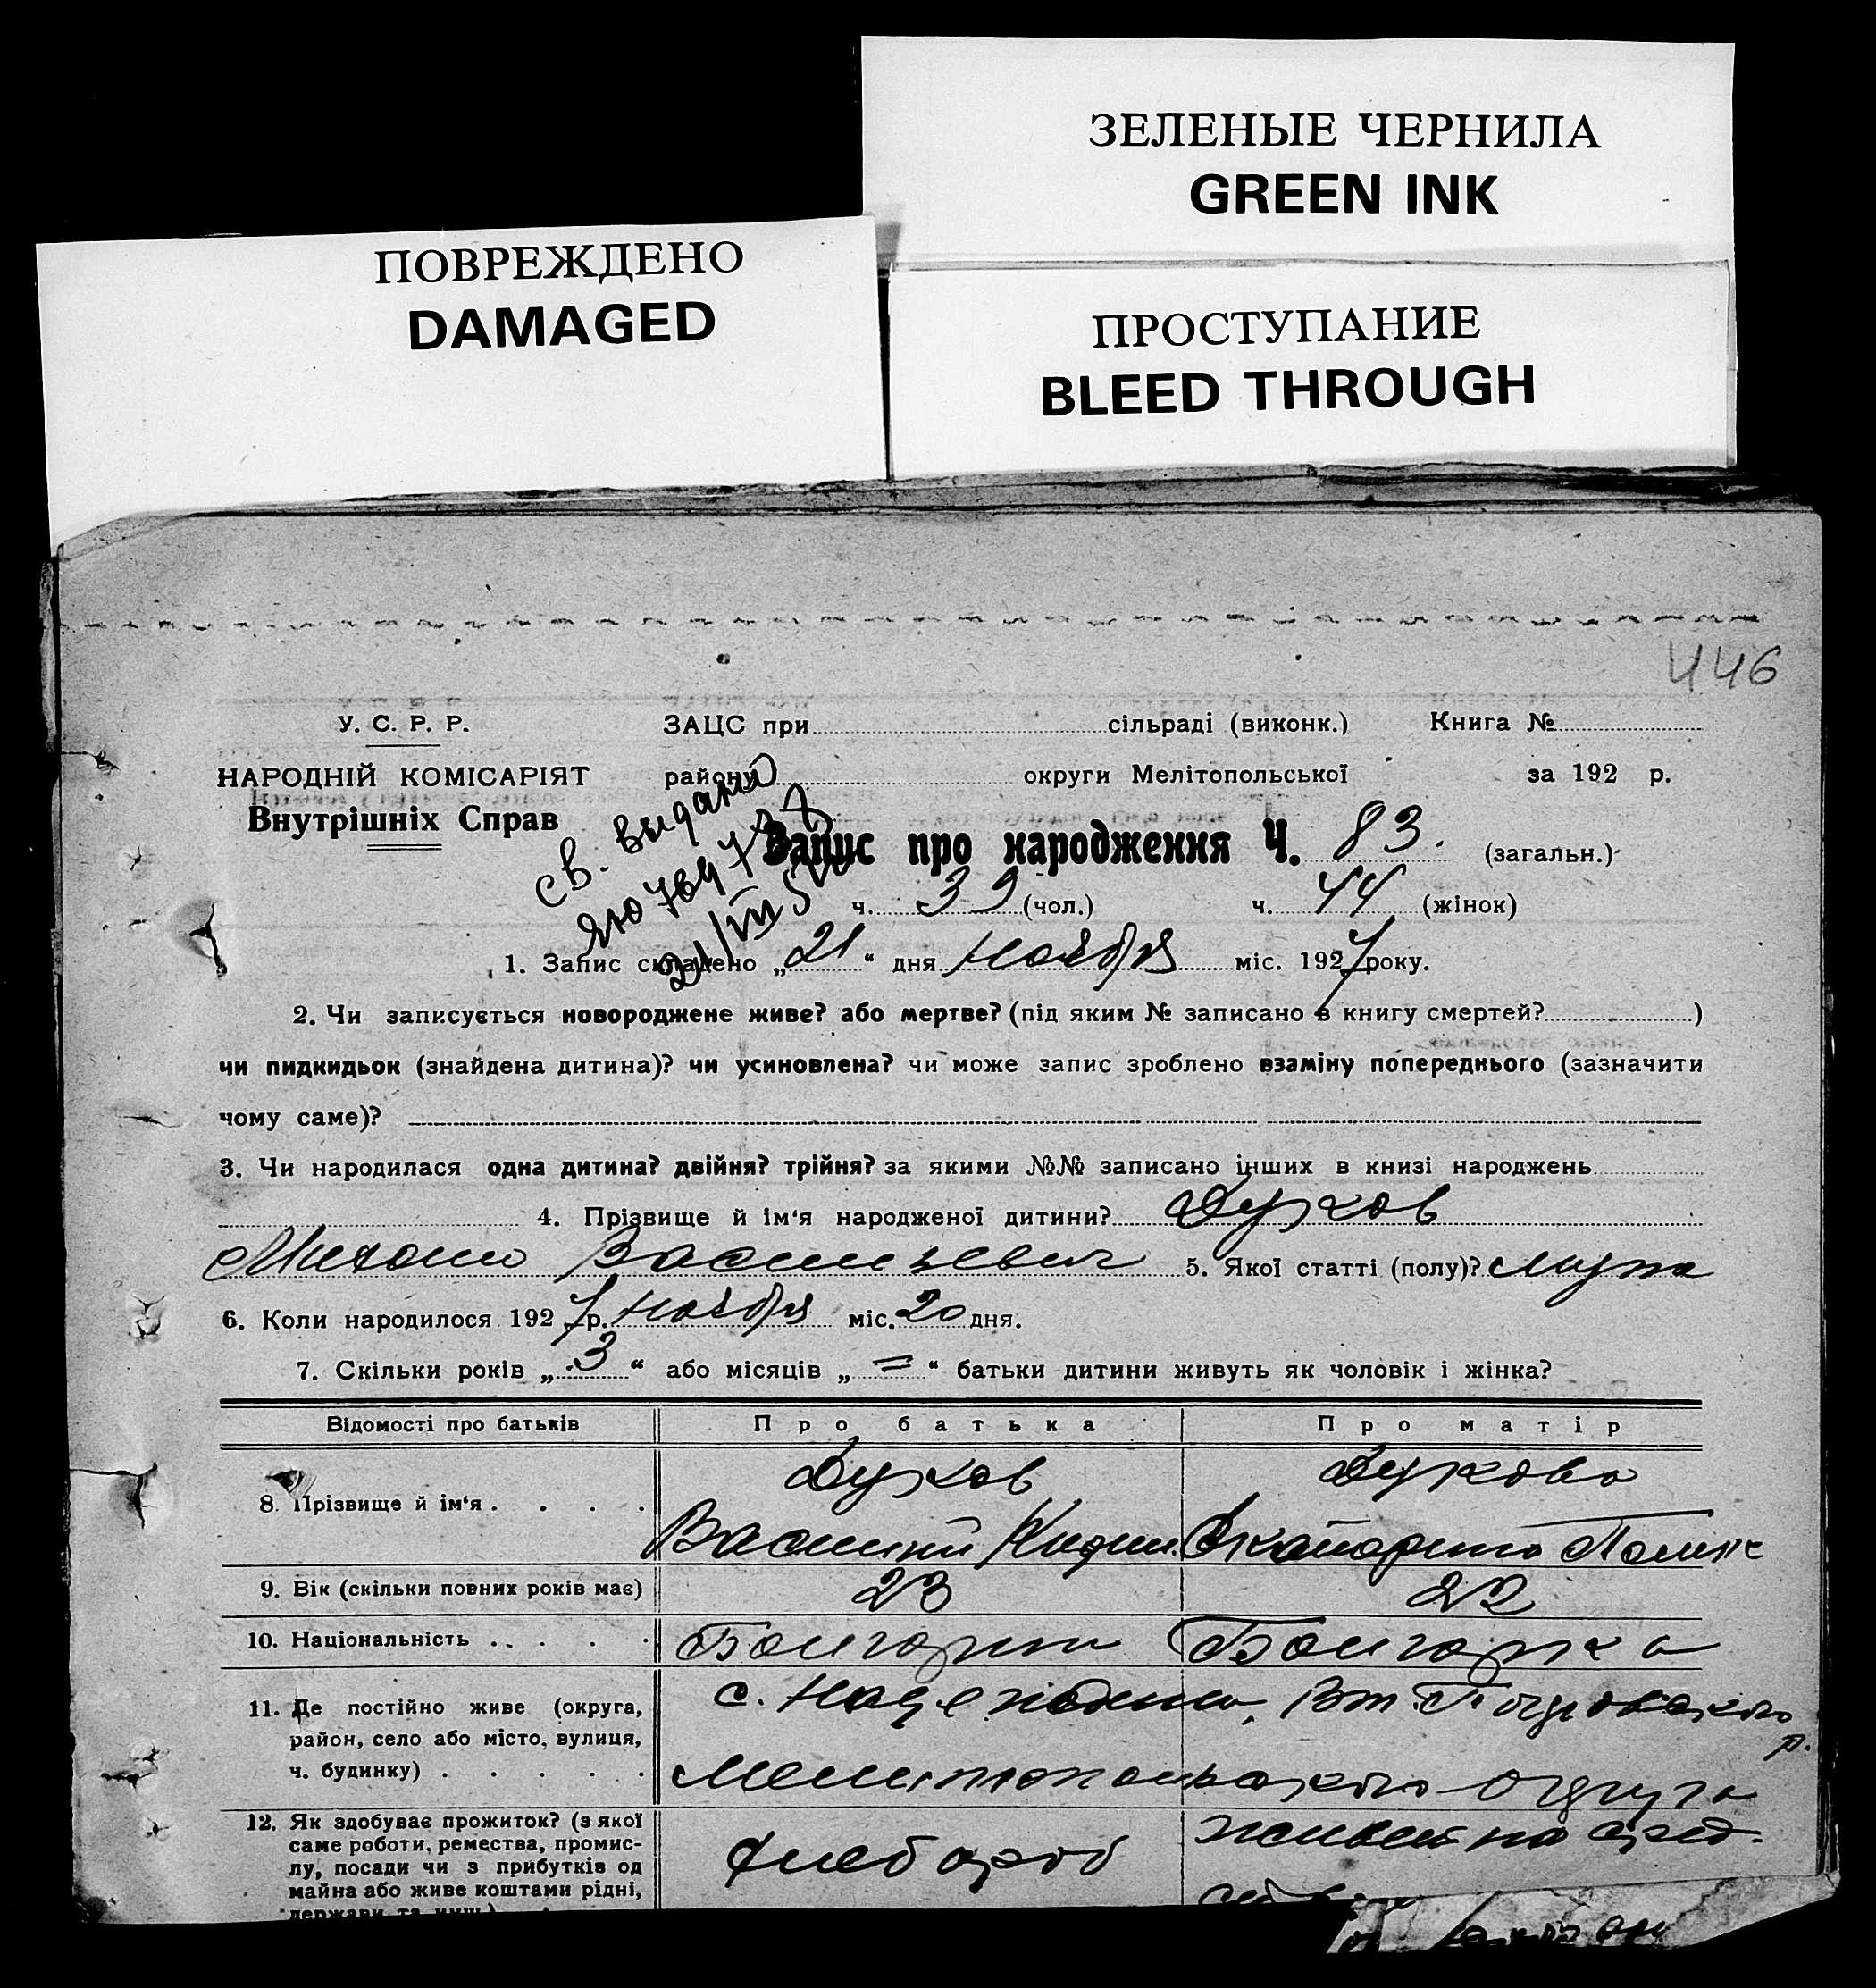 ЗЕЛЕНЫЕ ЧЕРНИЛА
GREEN INK
ПОВРЕЖДЕНО
DAMAGED
ПРОСТУПАНИЕ
BLEED THROUGH
446
У. С. Р. Р.
ЗАЦС при сільраді (виконк.) Книга №
НАРОДНІЙ КОМІСАРІЯТ
району округи Мелітопольської за 192 р.
Внутрішніх Справ
св. выдано
21/VIII
Запис про народження Ч. 83. (загальн.)
ч. 39 (чол.) ч. 44 (жінок)
1. Запис складено „21“ дня Ноября міс. 1927 року.
2. Чи записується новороджене живе? або мертве? (під яким № записано в книгу смертей? )
чи пидкидьок (знайдена дитина)? чи усиновлена? чи може запис зроблено взаміну попереднього (зазначити
чому саме)?
3. Чи народилася одна дитина? двійня? трійня? за якими №№ записано інших в книзі народжень
4. Прізвище й ім‘я народженої дитини? Духов
Михаил Васильевич 5. Якої статті (полу)? мужа
6. Коли народилося 1927 р. Ноября міс. 20 дня.
7. Скільки років „3“ або місяців „=“ батьки дитини живуть як чоловік і жінка?
Відомості про батьків Про батька Про матір
Духов Духова
8. Прізвище й ім‘я . . . .
Василий Екатерина
9. Вік (скільки повних років має) 23 22
10. Національність . . . . Болгарин Болгарка
11. Де постійно живе (округа, район, село або місто, вулиця, ч. будинку) . . . . .
с. Надеждино,
р.
Мелитопольского округа
12. Як здобуває прожиток? (з якої саме роботи, ремества, промислу, посади чи з прибутків од майна або живе коштами рідні, держави та инш.)
хлебороб
живет на сред.